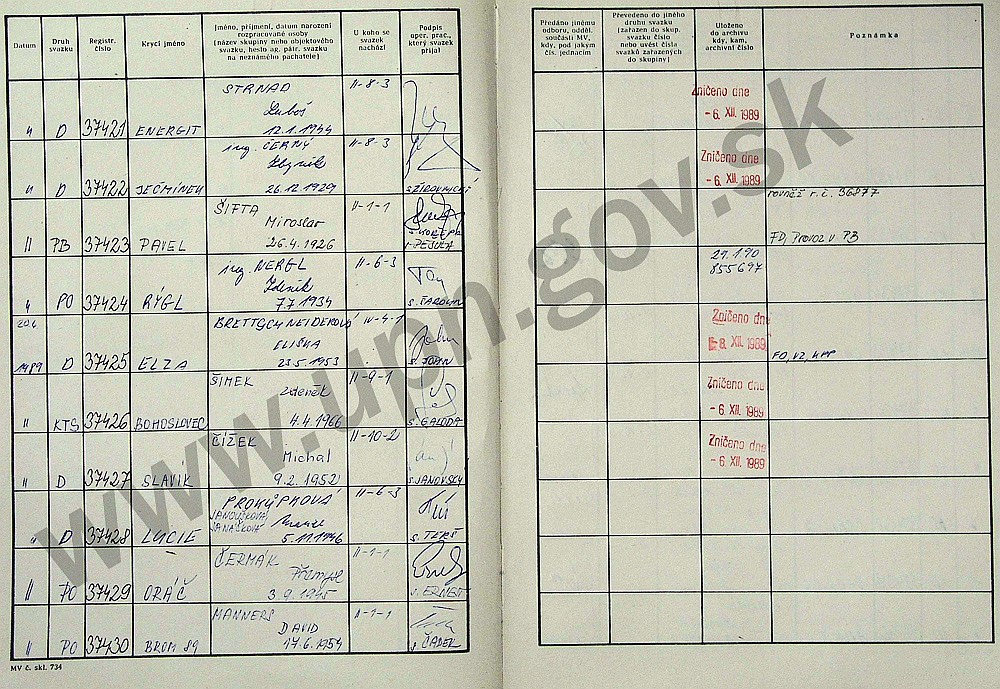 Datum
Druh svazku
Registr. číslo
Krycí jméno
Jméno, příjmení, datum narození
rozpracované osoby
(název skupiny nebo objektového
svazku, heslo ag. pátr. svazku
na neznámého pachatele)
U koho se
svazek
nachází
Podpis
oper. prac.,
který svazek
přijal
Předáno jinému
odboru, odděl.
součásti MV,
kdy, pod jakým
čís. jednacím
Převedeno do jiného
druhu svazku
(zařazen do skup.
svazku číslo
nebo uvést čísla
svazků zařazených
do skupiny)
Uloženo
do archivu
kdy, kam,
archivní číslo
Poznámka
STRNAD II-8-3
Luboš
" D 37421 ENERGIT 12.1.1944
Zničeno dne
- 6. XII. 1989
ing. ČERNÝ II-8-3
Zbyněk
" D 37422 JEČMÍNEK 26.12.1929
Zničeno dne
- 6. XII. 1989
ŠIFTA II-1-1
Miroslav
" PB 37423 PAVEL 26.4.1926
rovněž r.č. 36877
FO, Provoz v PB
ing. NERGL II-6-3
Zdeněk
" PO 37424 RÝGL 7.7.1934
29.1.90
855697
20.6.
BRETTSCHNEIDEROVÁ IV-4-1
ELIŠKA
1989 D 37425 ELZA 23.5.1953 s. JOHN
Zničeno dne
- 8. XII. 1989
ŠIMEK II-9-1
Zdeněk
" KTS 37426 BOHOSLOVEC 4.4.1966 s. GALODA
Zničeno dne
- 6. XII. 1989
ČÍŽEK II-10-2
Michal
" D 37427 SLAVÍK 9.2.1952 s. JANOVSKÝ
Zničeno dne
- 6. XII. 1989
PROKŮPKOVÁ II-6-3
JANOUŠKOVÁ
JANAŠKOVÁ
" D 37428 LUCIE 5.11.1946 s. TERŠ
ČERMÁK II-1-1
Přemysl
" PO 37429 ORÁČ 3.9.1945 s. ERNEST
MANNERS II-1-1
DAVID
" PO 37430 BROM 89 17.6.1954 s. ČADEK
MV č. skl. 734
www.upn.gov.sk